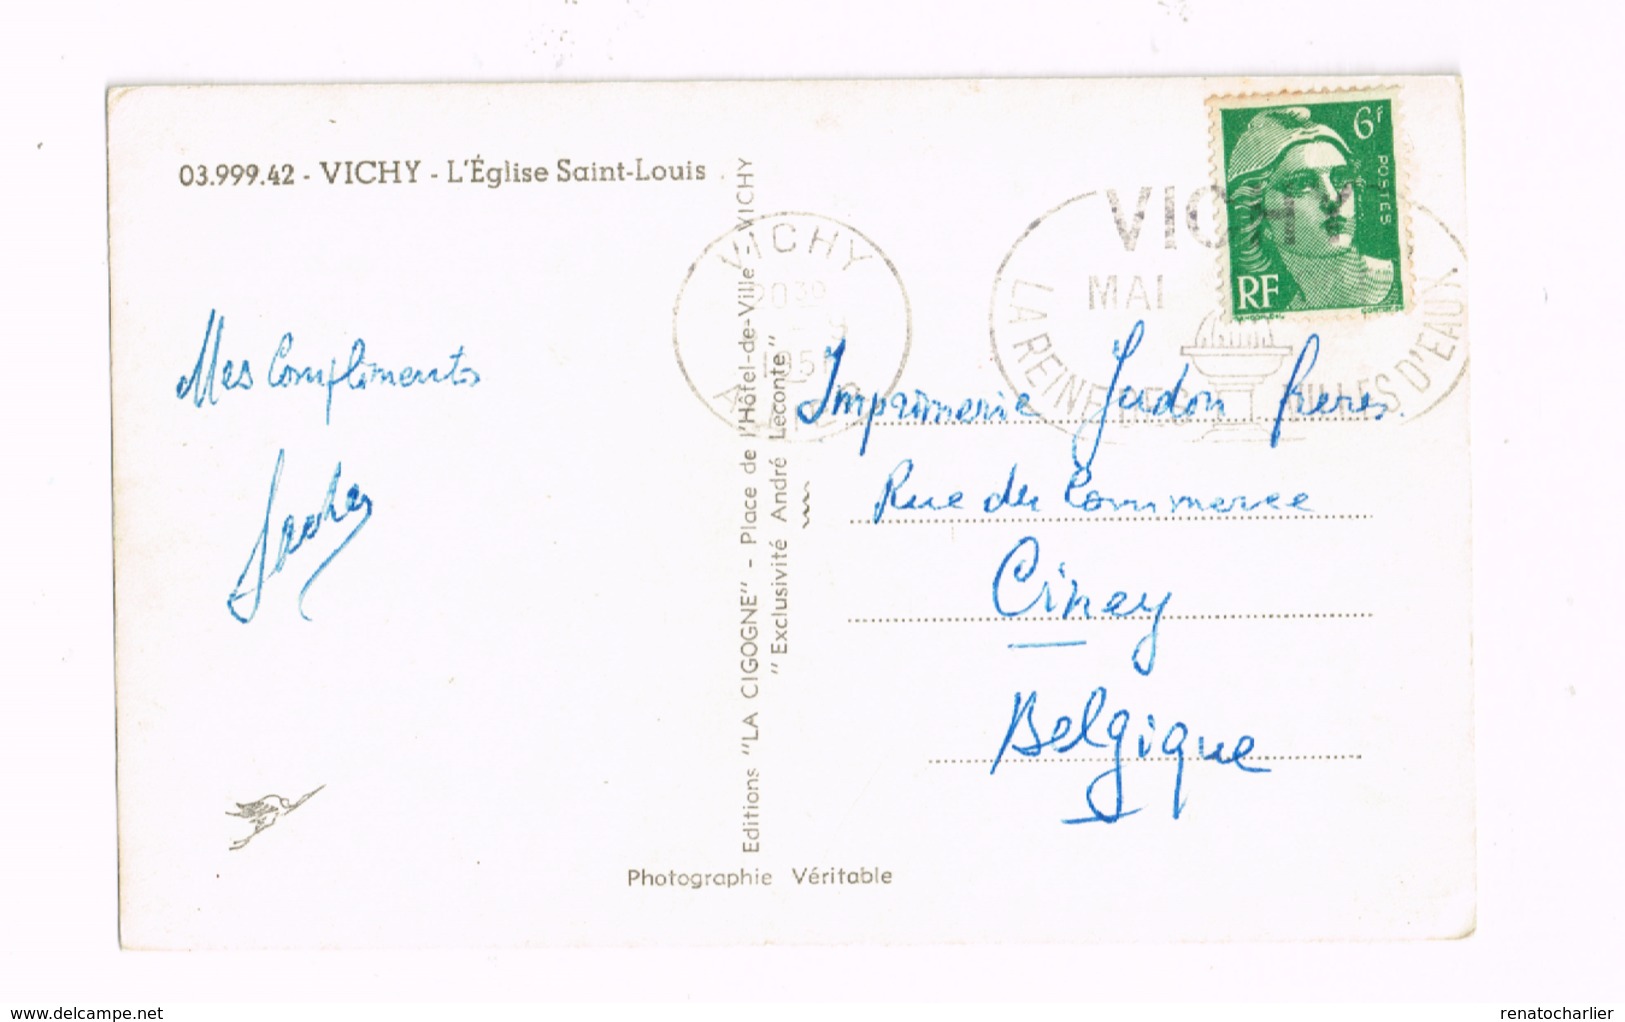 03.999.42 - VICHY - L'Église Saint-Louis
6F
POSTES
RF
VICHY
20 30
1951
VICHY
MAI
LA REINE DES VILLES D'EAUX
Mes Compliments
Imprimerie Jadon freres.
Rue du Commerce
Ciney
Belgique
Editions "LA CIGOGNE" - Place de l'Hôtel-de-Ville - VICHY
"Exclusivité André Leconte"
Photographie Véritable
delcampe.net
renatocharlier